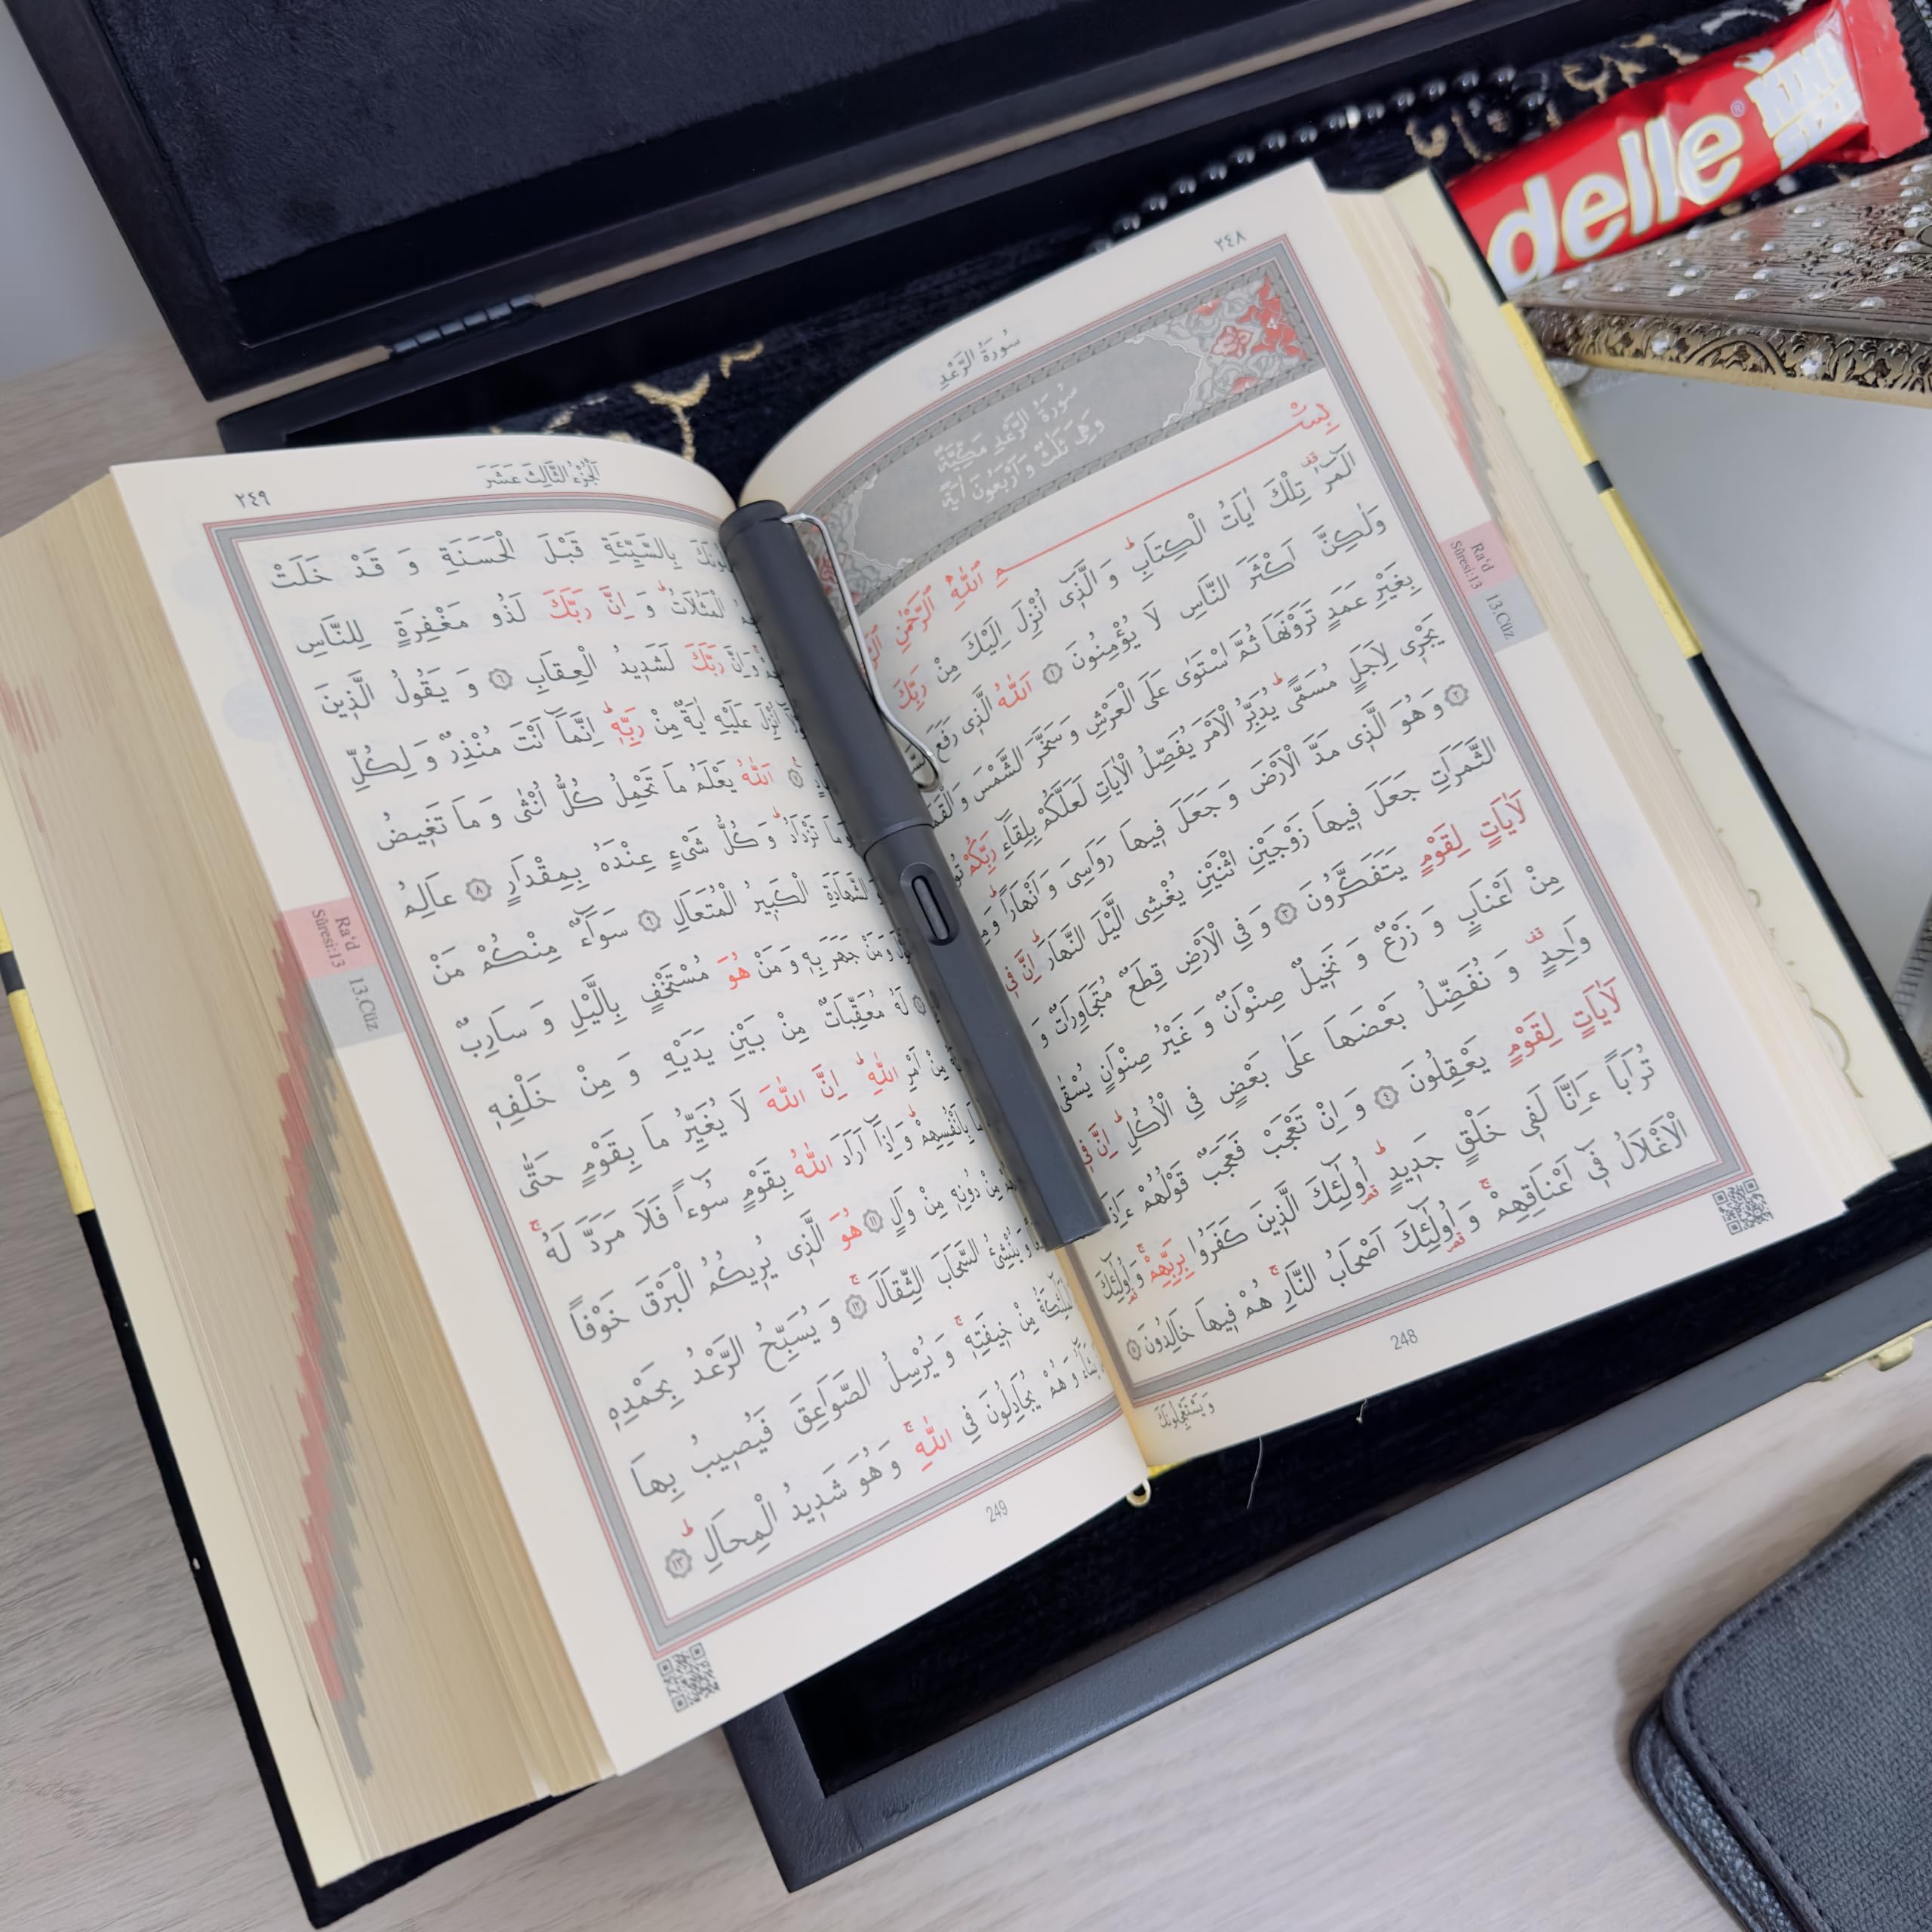 delle® KING SIZE
٢٤٨
سُورَةُ الرَّعْدِ
سُورَةُ الرَّعْدِ مَكِّيَّةٌ
وَهِيَ ثَلَثٌ وَ اَرْبَعُونَ اٰيَةً
بِسْمِ اللّٰهِ الرَّحْمٰنِ
الٓمٓرٰ تِلْكَ اٰيَاتُ الْكِتَابِ وَ الَّذٖٓى اُنْزِلَ اِلَيْكَ مِنْ رَبِّكَ
وَلٰكِنَّ اَكْثَرَ النَّاسِ لَا يُؤْمِنُونَ ١ اَللّٰهُ الَّذٖى رَفَعَ
بِغَيْرِ عَمَدٍ تَرَوْنَهَا ثُمَّ اسْتَوٰى عَلَى الْعَرْشِ وَ سَخَّرَ الشَّمْسَ وَ الْقَمَرَ
يَجْرٖى لِاَجَلٍ مُسَمًّى يُدَبِّرُ الْاَمْرَ يُفَصِّلُ الْاٰيَاتِ لَعَلَّكُمْ بِلِقَٓاءِ رَبِّكُمْ
٢ وَ هُوَ الَّذٖى مَدَّ الْاَرْضَ وَ جَعَلَ فٖيهَا رَوَاسِىَ وَ اَنْهَارًا
الثَّمَرَاتِ جَعَلَ فٖيهَا زَوْجَيْنِ اثْنَيْنِ يُغْشِى الَّيْلَ النَّهَارَ اِنَّ فٖى
لَاٰيَاتٍ لِقَوْمٍ يَتَفَكَّرُونَ ٣ وَ فِى الْاَرْضِ قِطَعٌ مُتَجَاوِرَاتٌ وَ
مِنْ اَعْنَابٍ وَ زَرْعٌ وَ نَخٖيلٌ صِنْوَانٌ وَ غَيْرُ صِنْوَانٍ يُسْقٰى
وَاحِدٍ وَ نُفَضِّلُ بَعْضَهَا عَلٰى بَعْضٍ فِى الْاُكُلِ اِنَّ فٖى
لَاٰيَاتٍ لِقَوْمٍ يَعْقِلُونَ ٤ وَ اِنْ تَعْجَبْ فَعَجَبٌ قَوْلُهُمْ
تُرَابًا ءَاِنَّا لَفٖى خَلْقٍ جَدٖيدٍ اُولٰٓئِكَ الَّذٖينَ كَفَرُوا بِرَبِّهِمْ وَ اُولٰٓئِكَ
الْاَغْلَالُ فٖٓى اَعْنَاقِهِمْ وَ اُولٰٓئِكَ اَصْحَابُ النَّارِ هُمْ فٖيهَا خَالِدُونَ ٥
Ra'd
Sûresi:13
13.Cüz
248
وَ يَسْتَعْجِلُونَكَ
٢٤٩
اَلْجُزْءُ الثَّالِثَ عَشَرَ
بِالسَّيِّئَةِ قَبْلَ الْحَسَنَةِ وَ قَدْ خَلَتْ
الْمَثُلَاتُ وَ اِنَّ رَبَّكَ لَذُو مَغْفِرَةٍ لِلنَّاسِ
وَاِنَّ رَبَّكَ لَشَدٖيدُ الْعِقَابِ ٦ وَ يَقُولُ الَّذٖينَ
اُنْزِلَ عَلَيْهِ اٰيَةٌ مِنْ رَبِّهٖ اِنَّمَٓا اَنْتَ مُنْذِرٌ وَ لِكُلِّ
٧ اَللّٰهُ يَعْلَمُ مَا تَحْمِلُ كُلُّ اُنْثٰى وَ مَا تَغٖيضُ
وَمَا تَزْدَادُ وَ كُلُّ شَىْءٍ عِنْدَهُ بِمِقْدَارٍ ٨ عَالِمُ
الشَّهَادَةِ الْكَبٖيرُ الْمُتَعَالِ ٩ سَوَٓاءٌ مِنْكُمْ مَنْ
وَمَنْ جَهَرَ بِهٖ وَ مَنْ هُوَ مُسْتَخْفٍ بِالَّيْلِ وَ سَارِبٌ
لَهُ مُعَقِّبَاتٌ مِنْ بَيْنِ يَدَيْهِ وَ مِنْ خَلْفِهٖ
مِنْ اَمْرِ اللّٰهِ اِنَّ اللّٰهَ لَا يُغَيِّرُ مَا بِقَوْمٍ حَتّٰى
بِاَنْفُسِهِمْ وَ اِذَٓا اَرَادَ اللّٰهُ بِقَوْمٍ سُٓوءًا فَلَا مَرَدَّ لَهُ
مِنْ دُونِهٖ مِنْ وَالٍ ١١ هُوَ الَّذٖى يُرٖيكُمُ الْبَرْقَ خَوْفًا
وَ يُنْشِئُ السَّحَابَ الثِّقَالَ ١٢ وَ يُسَبِّحُ الرَّعْدُ بِحَمْدِهٖ
مِنْ خٖيفَتِهٖ وَ يُرْسِلُ الصَّوَاعِقَ فَيُصٖيبُ بِهَا
وَ هُمْ يُجَادِلُونَ فِى اللّٰهِ وَ هُوَ شَدٖيدُ الْمِحَالِ ١٣
Ra'd
Sûresi:13
13.Cüz
249